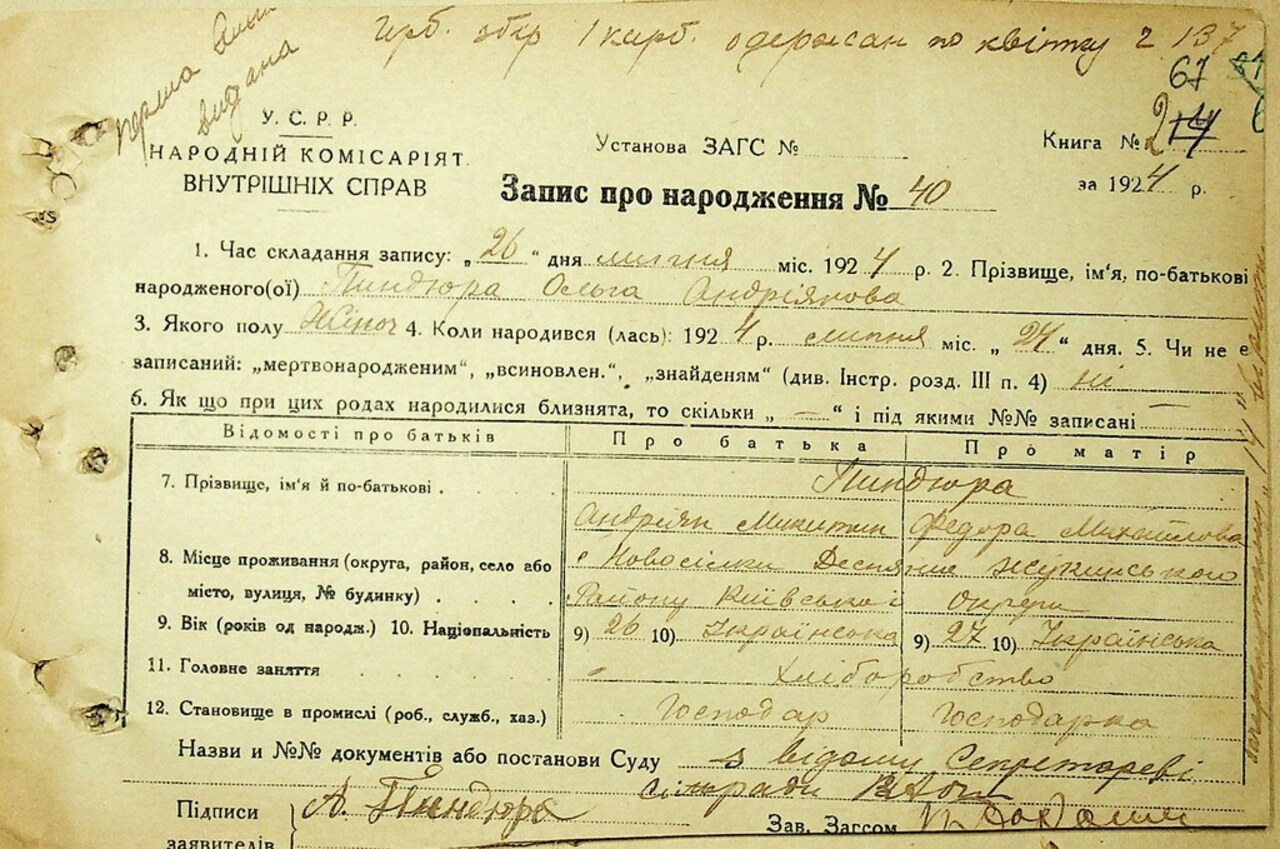 Герб. збір 1 карб. одержан по квітку 2 137
видана
67
У. С. Р. Р.
НАРОДНІЙ КОМІСАРІЯТ
ВНУТРІШНІХ СПРАВ
Установа ЗАГС №
Книга № 2
за 1924 р.
Запис про народження № 40
1. Час складання запису: „26“ дня липня міс. 1924 р. 2. Прізвище, ім'я, по-батькові
народженого(ої) Пиндюра Ольга Андріякова
3. Якого полу Жіноч 4. Коли народився (лась): 1924 р. липня міс. „24“ дня. 5. Чи не є
записаний: „мертвонародженим“, „всиновлен.“, „знайденям“ (див. Інстр. розд. III п. 4) ні
6. Як що при цих родах народилися близнята, то скільки „—“ і під якими №№ записані —
Відомості про батьків Про батька Про матір
7. Прізвище, ім'я й по-батькові . Пиндюра
Андріян Микитин Федора Михайлова
8. Місце проживання (округа, район, село або с Новосілки Десняние Жукинського
місто, вулиця, № будинку) . Району Київської Округи
9. Вік (років од народж.) 10. Національність 9) 26 10) Українська 9) 27 10) Українська
11. Головне заняття Хліборобство
12. Становище в промислі (роб., служб., хаз.) Господар Господарка
Назви и №№ документів або постанови Суду з відому Секретареві
сільради
Підписи А. Пиндюра
заявителів
Зав. Загсом